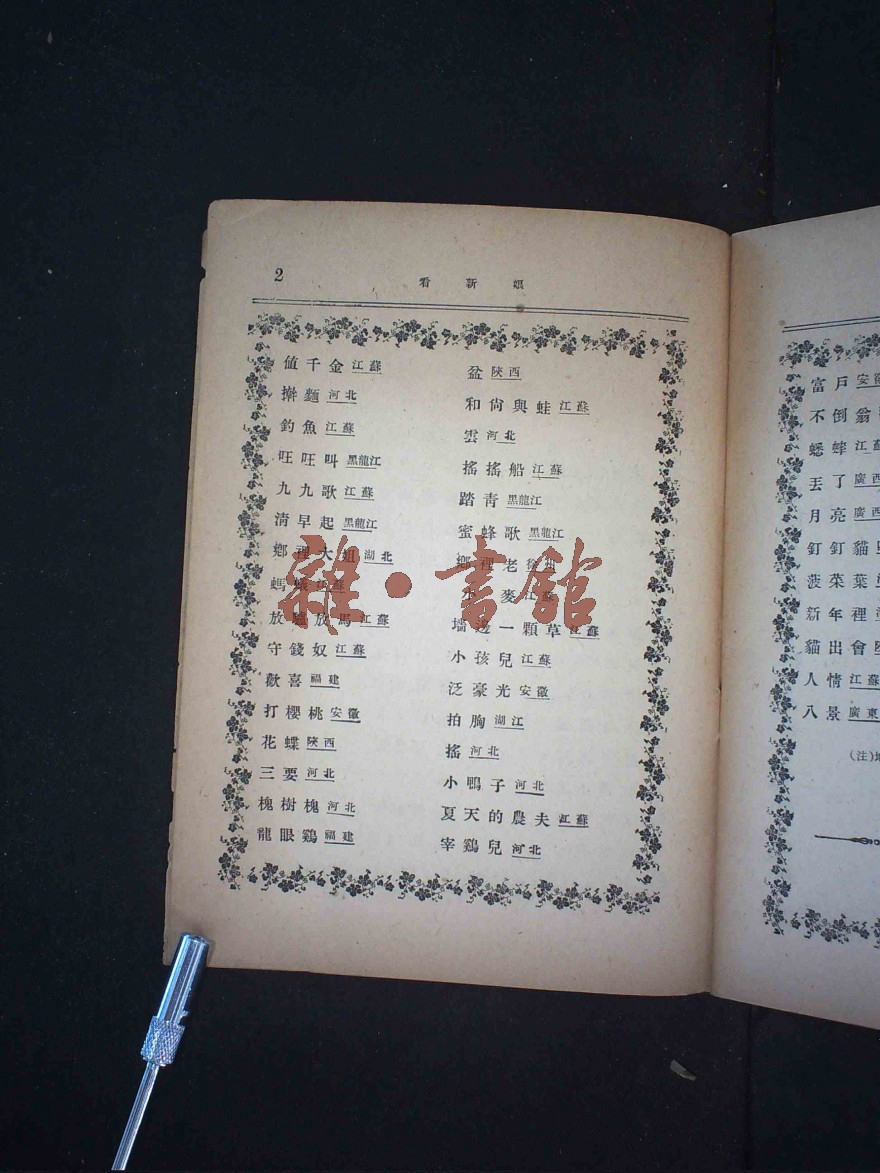 2
看新娘
值千金 江蘇
擀麵 河北
釣魚 江蘇
旺旺叫 黑龍江
九九歌 江蘇
清早起 黑龍江
鄉裡大姐 湖北
螞蟻 江蘇
放驢放馬 江蘇
守錢奴 江蘇
歡喜 福建
打櫻桃 安徽
花蝶 陝西
三要 河北
槐樹槐 河北
龍眼鷄 福建
盆 陝西
和尙與蛙 江蘇
雲 河北
搖搖船 江蘇
踏靑 黑龍江
蜜蜂歌 黑龍江
鄉裡老
麥 江蘇
墻邊一顆草 江蘇
小孩兒 江蘇
泛豪光 安徽
拍胸 湖江
搖 河北
小鴨子 河北
夏天的農夫 江蘇
宰鷄兒 河北
雜·書館
富戶 安徽
不倒翁
蟋蟀 江蘇
丟了 廣西
月亮 廣西
釘釘貓
菠菜葉
新年裡
貓出會
人情 江蘇
八景 廣東
(注)